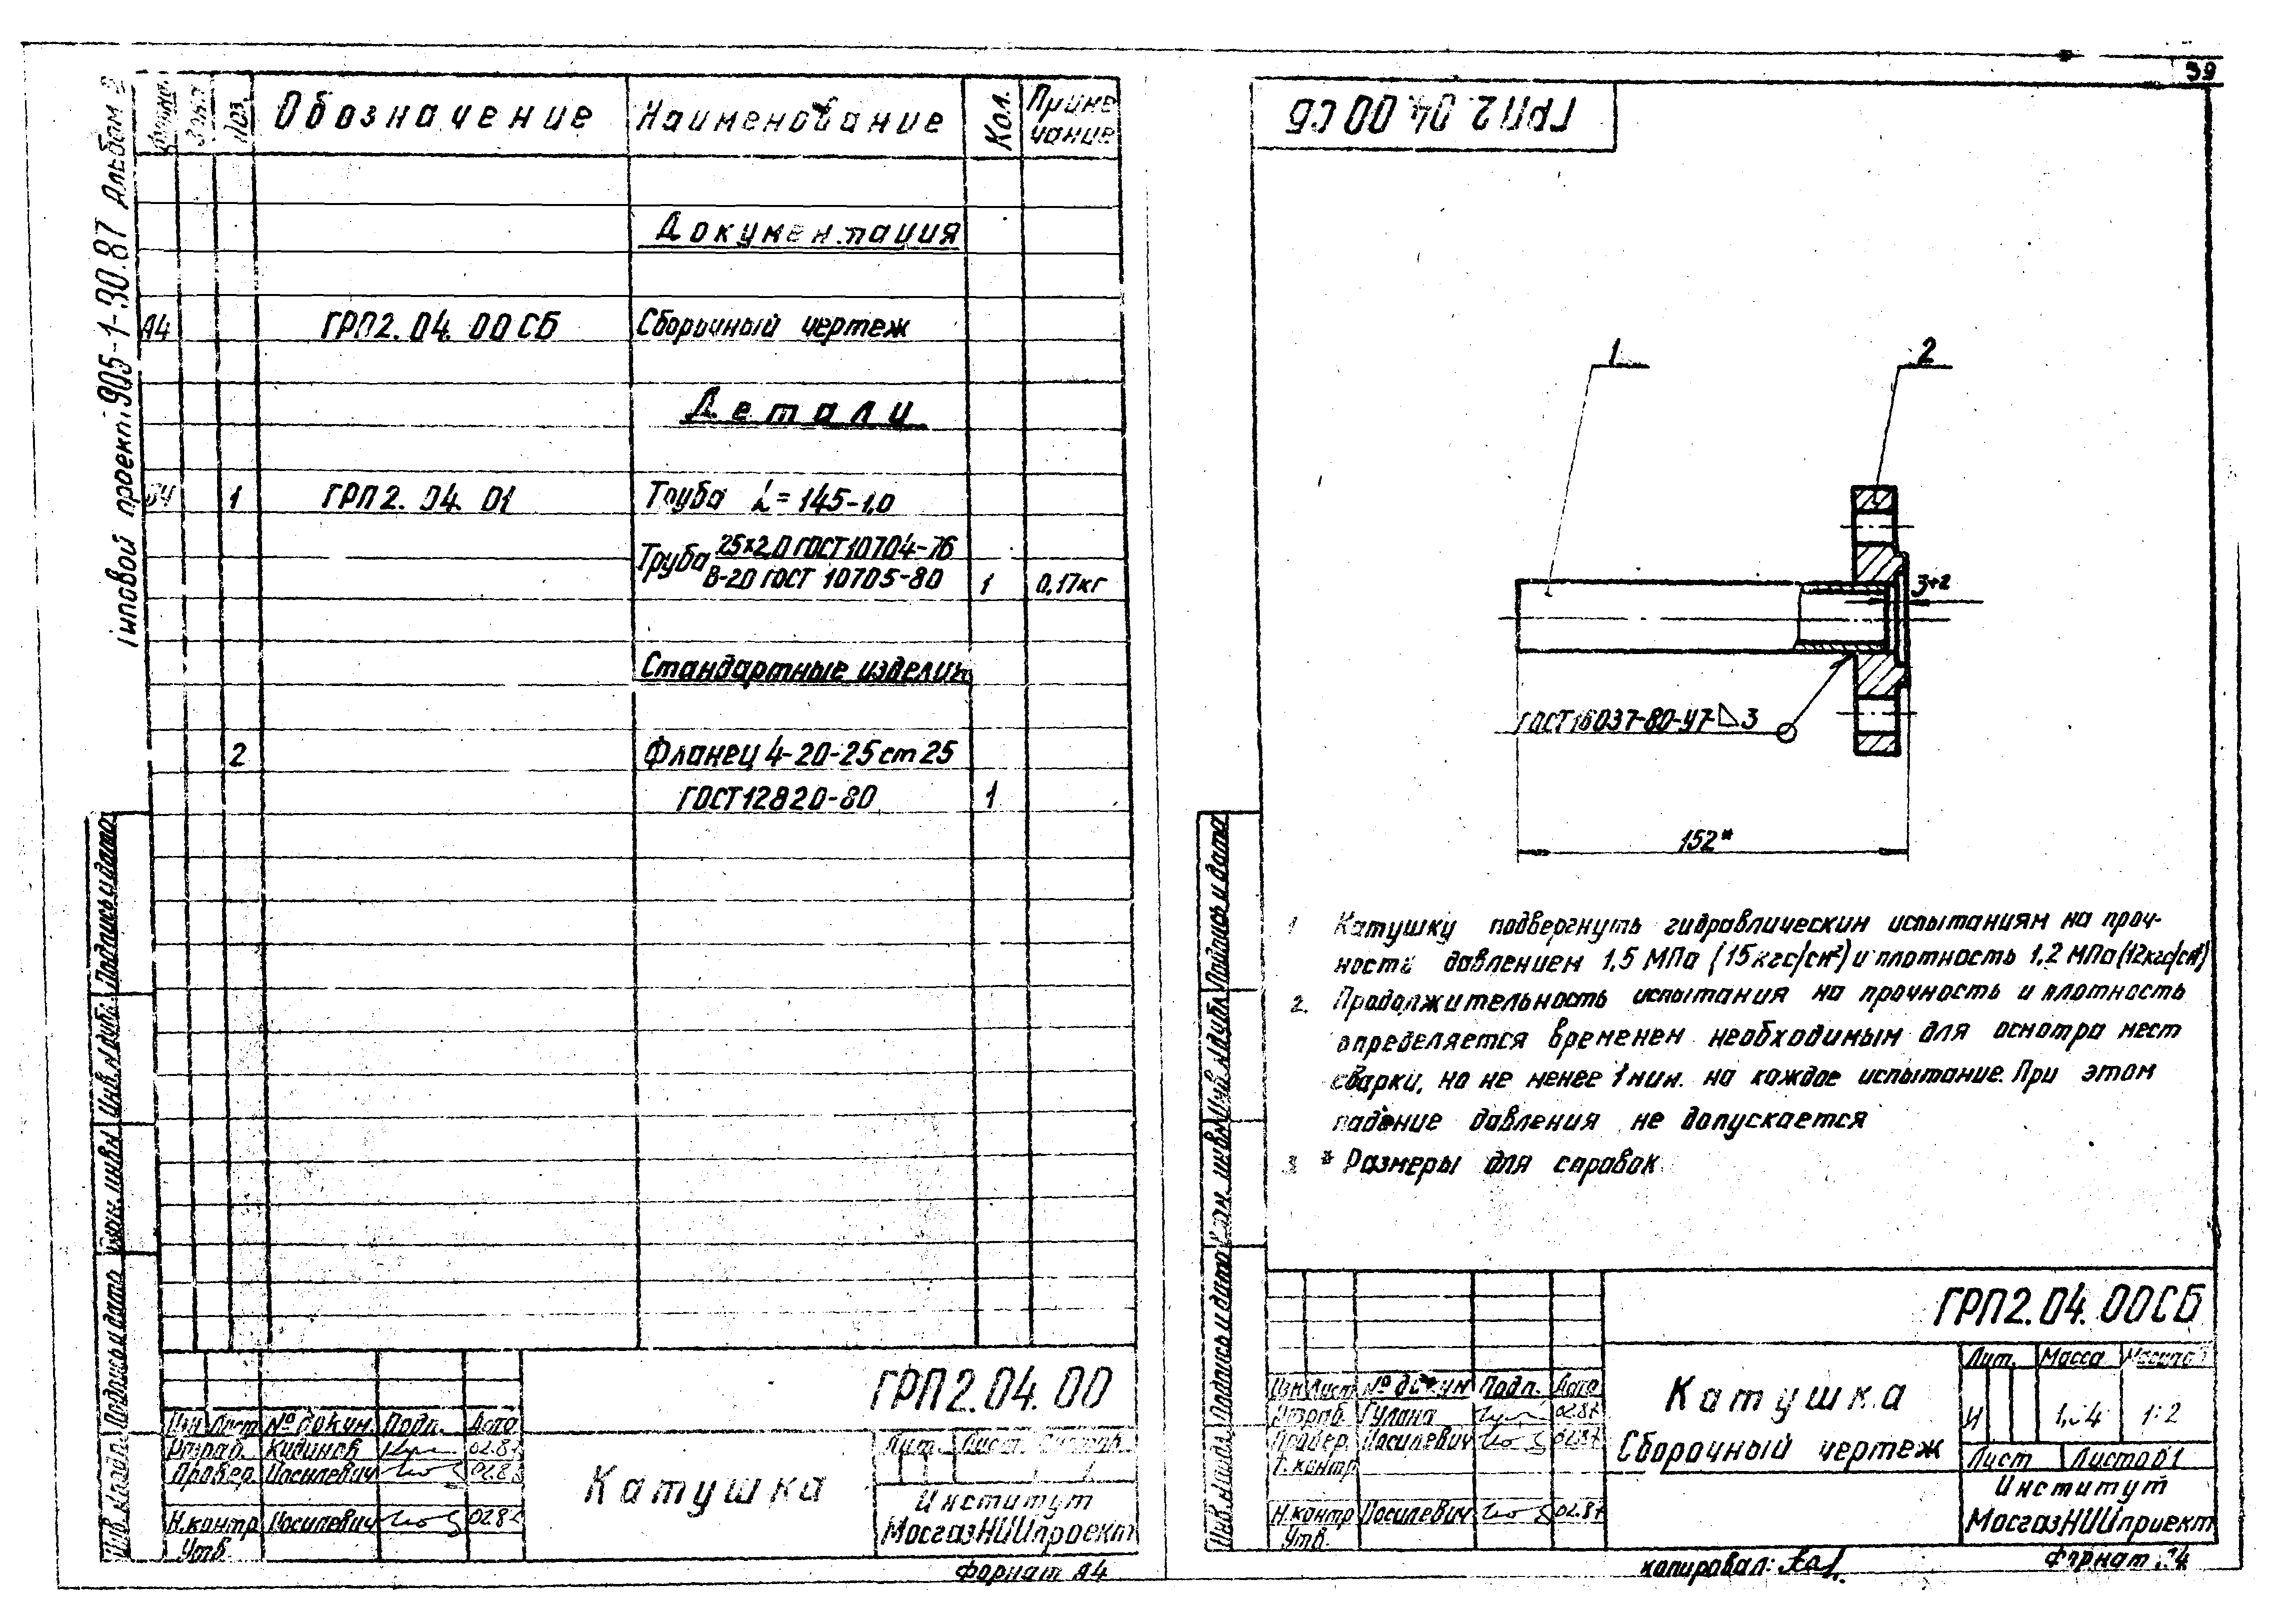 39
Типовой проект 905-1-30.87 Альбом 2
Формат Зона Поз. Обозначение Наименование Кол. Приме
чание
Документация
А4 ГРП2.04.00СБ Сборочный чертеж
Детали
БЧ 1 ГРП2.04.01 Труба L=145-1,0
Труба 25×2,0 ГОСТ 10704-76
В-20 ГОСТ 10705-80 1 0,17кг
Стандартные изделия
2 Фланец 4-20-25 ст 25
ГОСТ 12820-80 1
Подпись и дата
Инв.№дубл.
Взам. инв.№
Подпись и дата
Инв.№подл.
ГРП2.04.00
Изм Лист № докум. Подп. Дата
Разраб. 02.87
Провер. Посилевич 02.87
Н.контр Посилевич 02.87
Утв.
Катушка
Лит. Лист Листов
Институт
МосгазНИИпроект
Формат А4
ГРП2.04.00СБ
1 2
3+2
ГОСТ 16037-80-У7-◺3
152*
1 Катушку подвергнуть гидравлическим испытаниям на проч-
ность давлением 1,5 МПа (15кгс/см²) и плотность 1,2 МПа (12кгс/см²)
2. Продолжительность испытания на прочность и плотность
определяется временем необходимым для осмотра мест
сварки, но не менее 1 мин. на каждое испытание. При этом
падение давления не допускается
3 * Размеры для справок
Подпись и дата
Инв.№дубл
Взам. инв№
Подпись и дата
Инв.№подл
ГРП2.04.00СБ
Изм Лист № докум Подп. Дата
Разраб. 02.87
Провер. Посилевич 02.87
Т.контр
Н.контр Посилевич 02.87
Утв.
Катушка
Сборочный чертеж
Лит. Масса Масштаб
И 1:2
Лист Листов 1
Институт
МосгазНИИпроект
копировал:
Формат А4